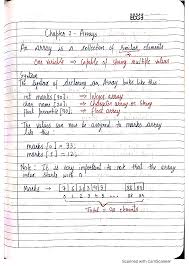 Chapter 7 - Arrays
An array is a collection of similar elements
One variable => Capable of storing multiple values
Syntax
The syntax of declaring an Array looks like this :
int marks [90]; => Integer array
char name [20]; => Character array or string
float percentile [90]; => float array
The values can now be assigned to marks array
like this :
marks [0] = 33;
marks [1] = 12;
Note : It is very important to note that the array
index starts with 0!
marks →
0 1 2 3
Total = 90 elements
Scanned with CamScanner